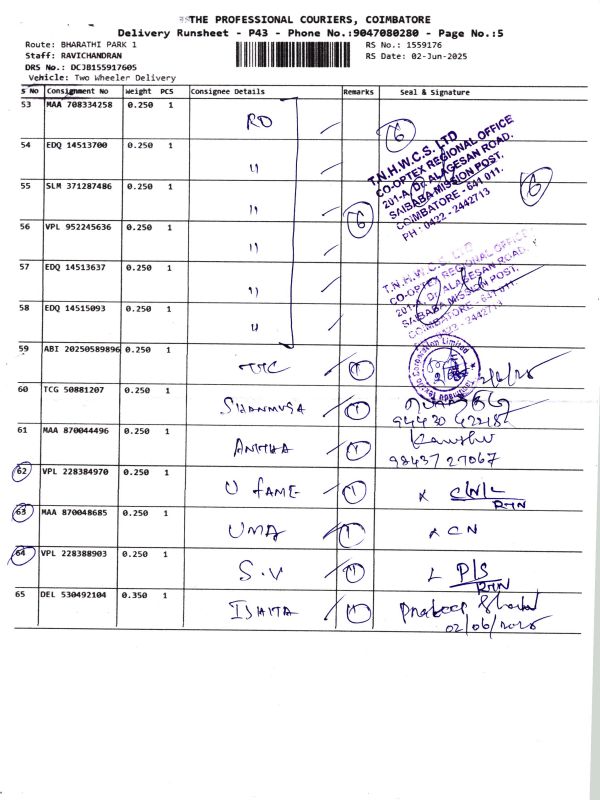 THE PROFESSIONAL COURIERS, COIMBATORE
Delivery Runsheet - P43 - Phone No.:9047080280 - Page No.:5
Route: BHARATHI PARK 1 RS No.: 1559176
Staff: RAVICHANDRAN RS Date: 02-Jun-2025
DRS No.: DCJB155917605
Vehicle: Two Wheeler Delivery
S No Consignment No Weight PCS Consignee Details Remarks Seal & Signature
53 MAA 708334258 0.250 1 RO
6
54 EDQ 14513700 0.250 1 "
T.N.H.W.C.S. LTD
CO-OPTEX REGIONAL OFFICE
201-A, Dr. ALAGESAN ROAD,
SAIBABA MISSION POST,
COIMBATORE - 641 011.
PH : 0422 - 2442713
55 SLM 371287486 0.250 1 " 6
56 VPL 952245636 0.250 1 " 6
57 EDQ 14513637 0.250 1 "
T.N.H.W.C.S. LTD
CO-OPTEX REGIONAL OFFICE
201-A, Dr. ALAGESAN ROAD,
SAIBABA MISSION POST,
COIMBATORE - 641 011.
0422 - 2442713
58 EDQ 15415093 0.250 1 "
59 ABI 20250589896 0.250 1 1 2/6/25
60 TCG 50881207 0.250 1 SHANMUGA 1
94430 42218
61 MAA 870044496 0.250 1 ANITHA 1
98437 27067
62 VPL 228384970 0.250 1 U FAME 1 x C/N/L
RTN
63 MAA 870048685 0.250 1 UMA 1 x CN
64 VPL 228388903 0.250 1 S.V 1 P/S
RTN
65 DEL 530492104 0.350 1 ISHITA 1 Pradeep
02/06/2025